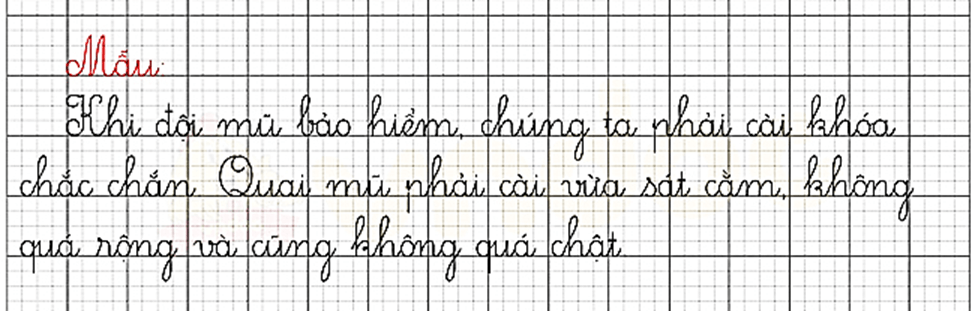 Mẫu:
Khi đội mũ bảo hiểm, chúng ta phải cài khóa
chắc chắn. Quai mũ phải cài vừa sát cằm, không
quá rộng và cũng không quá chật.